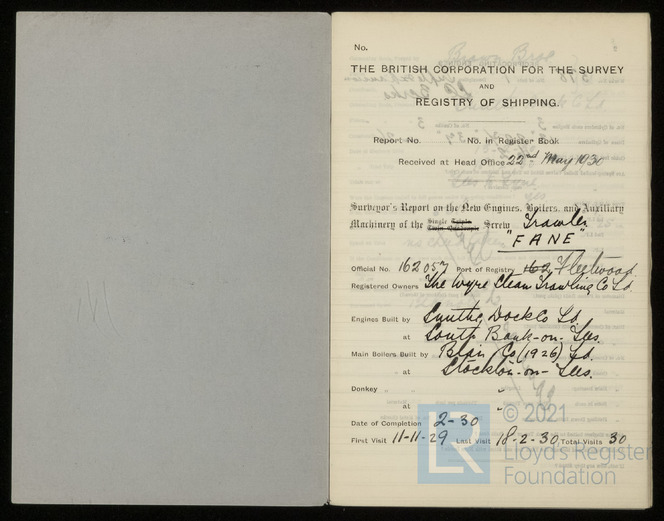 No.
THE BRITISH CORPORATION FOR THE SURVEY
AND
REGISTRY OF SHIPPING.
Report No. No. in Register Book
Received at Head Office 22nd May 1930
Surveyor's Report on the New Engines, Boilers, and Auxiliary
Machinery of the Single Triple Twin Quadruple Screw Trawler
"FANE"
Official No. 162057 Port of Registry 162 Fleetwood
Registered Owners The Wyre Steam Trawling Co Ld.
Engines Built by Smiths Dock Co Ld.
at South Bank-on-Tees.
Main Boilers Built by Blair Co (1926) Ld.
at Stockton-on-Tees.
Donkey " "
at
Date of Completion 2-30
First Visit 11-11-29 Last Visit 18-2-30 Total Visits 30
LR © 2021
Lloyd's Register
Foundation